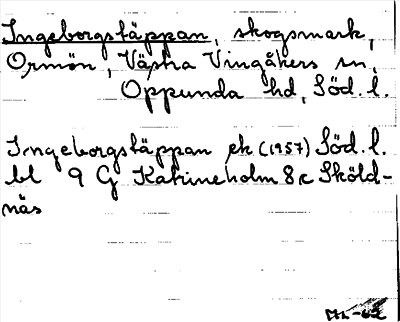 Ingeborgstäppan, skogsmark,
Ormön, Västra Vingåkers sn,
Oppunda hd, Söd. l.
Ingeborgstäppan ek (1957) Söd. l.
bl 9 G Katrineholm 8c Sköld-
näs